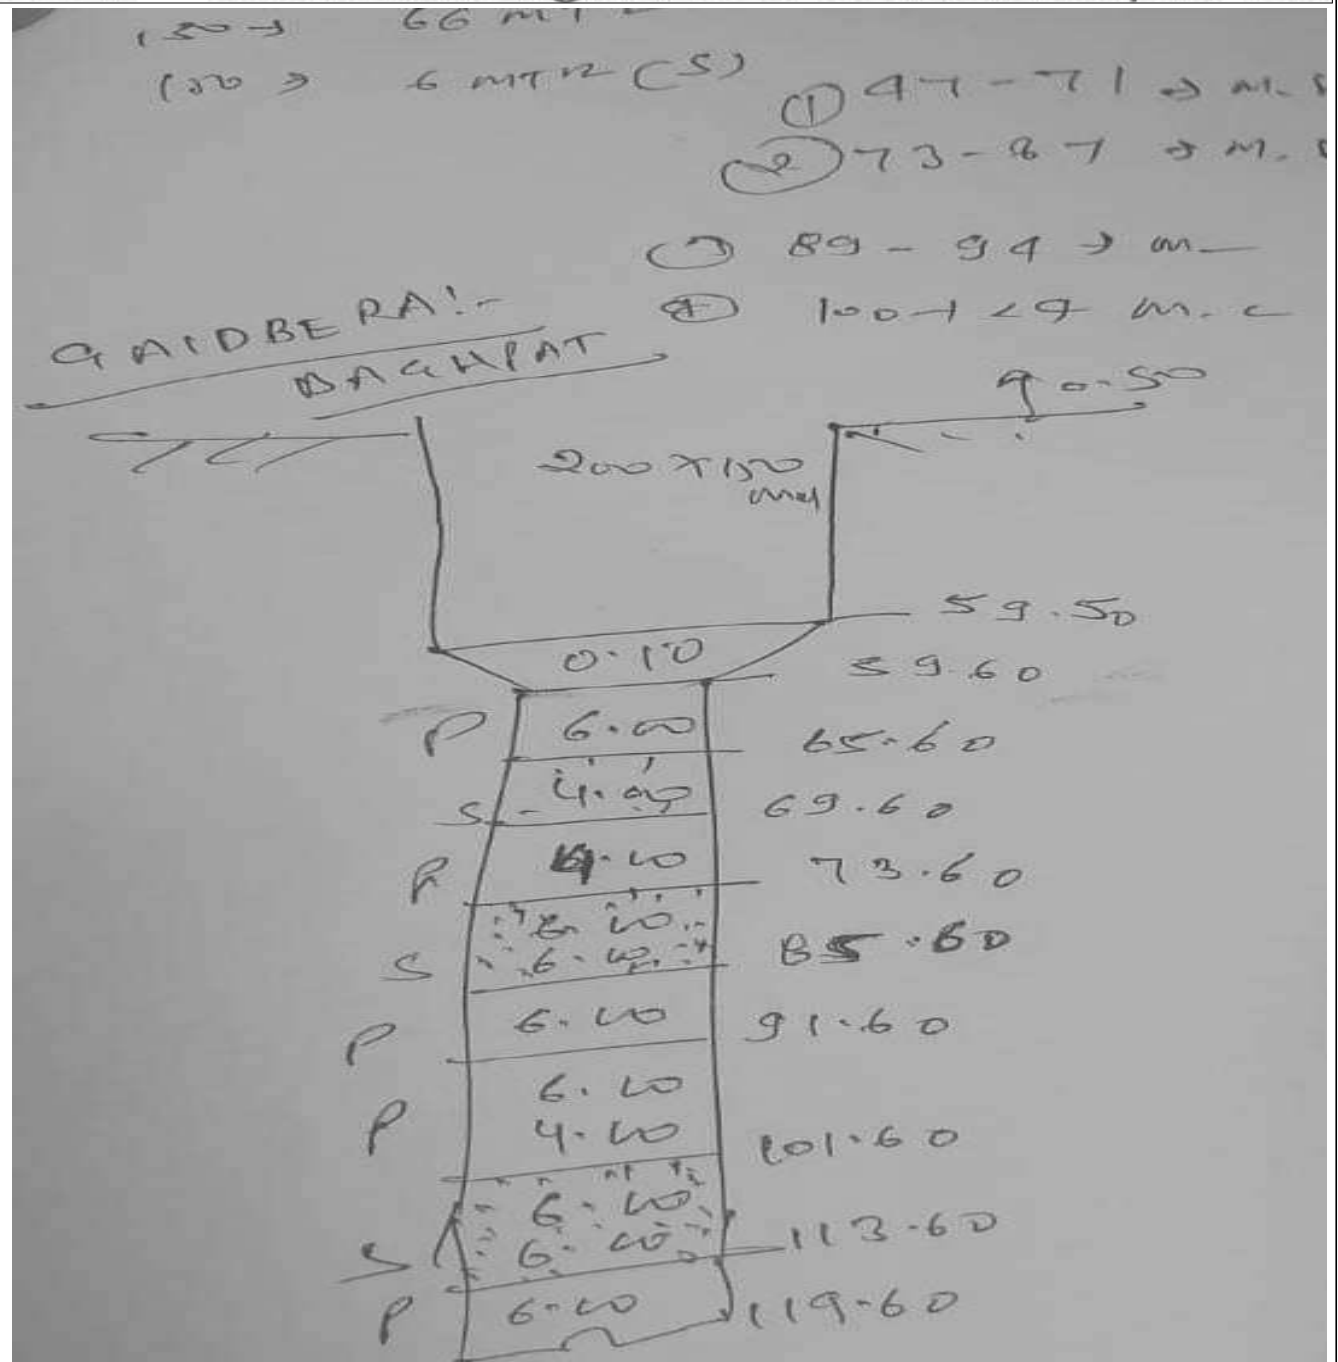 150 → 66 MT
150 → 6 MTR (S)
① 47 - 71 → M. S
② 73 - 87 → M. S
③ 89 - 94 → M
④ 100 - 129 M. C
GAIDBERA:-
BAGHPAT
90.50
200 X 150
59.50
0.10
59.60
P 6.00
65.60
S 4.00
69.60
P 4.00
73.60
6.00
S 6.00
85.60
P 6.00
91.60
6.00
P 4.00
101.60
6.00
S 6.00
113.60
P 6.00
119.60